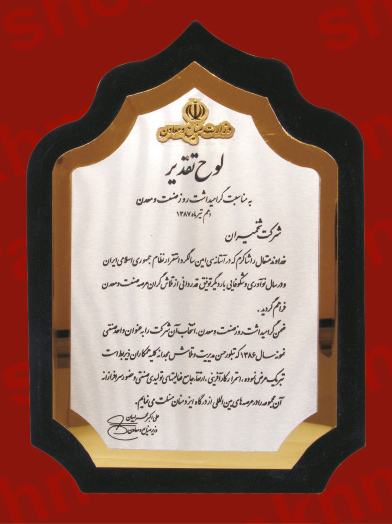 وزارت صنایع و معادن
لوح تقدیر
به مناسبت گرامیداشت روز صنعت و معدن
دهم تیرماه ۱۳۸۷
شرکت
خداوند متعال را شاکرم که در آستانه سی امین سالگرد استقرار نظام جمهوری اسلامی ایران
و در سال نوآوری و شکوفایی بار دیگر توفیق قدردانی از تلاش گران عرصه صنعت و معدن
فراهم گردید.
ضمن گرامیداشت روز صنعت و معدن، انتخاب آن شرکت را به عنوان واحد صنعتی
نمونه سال ۱۳۸۶ که تبلور حسن مدیریت و تلاش مجدانه کلیه همکاران ذیربط است
تبریک عرض نموده، استمرار کارآفرینی، ارتقاء جامع فعالیتهای تولیدی صنفی و حضور سرافرازانه
آن مجموعه را در عرصه های بین المللی از درگاه ایزد منان مسئلت می نمایم.
علی اکبر محرابیان
وزیر صنایع و معادن